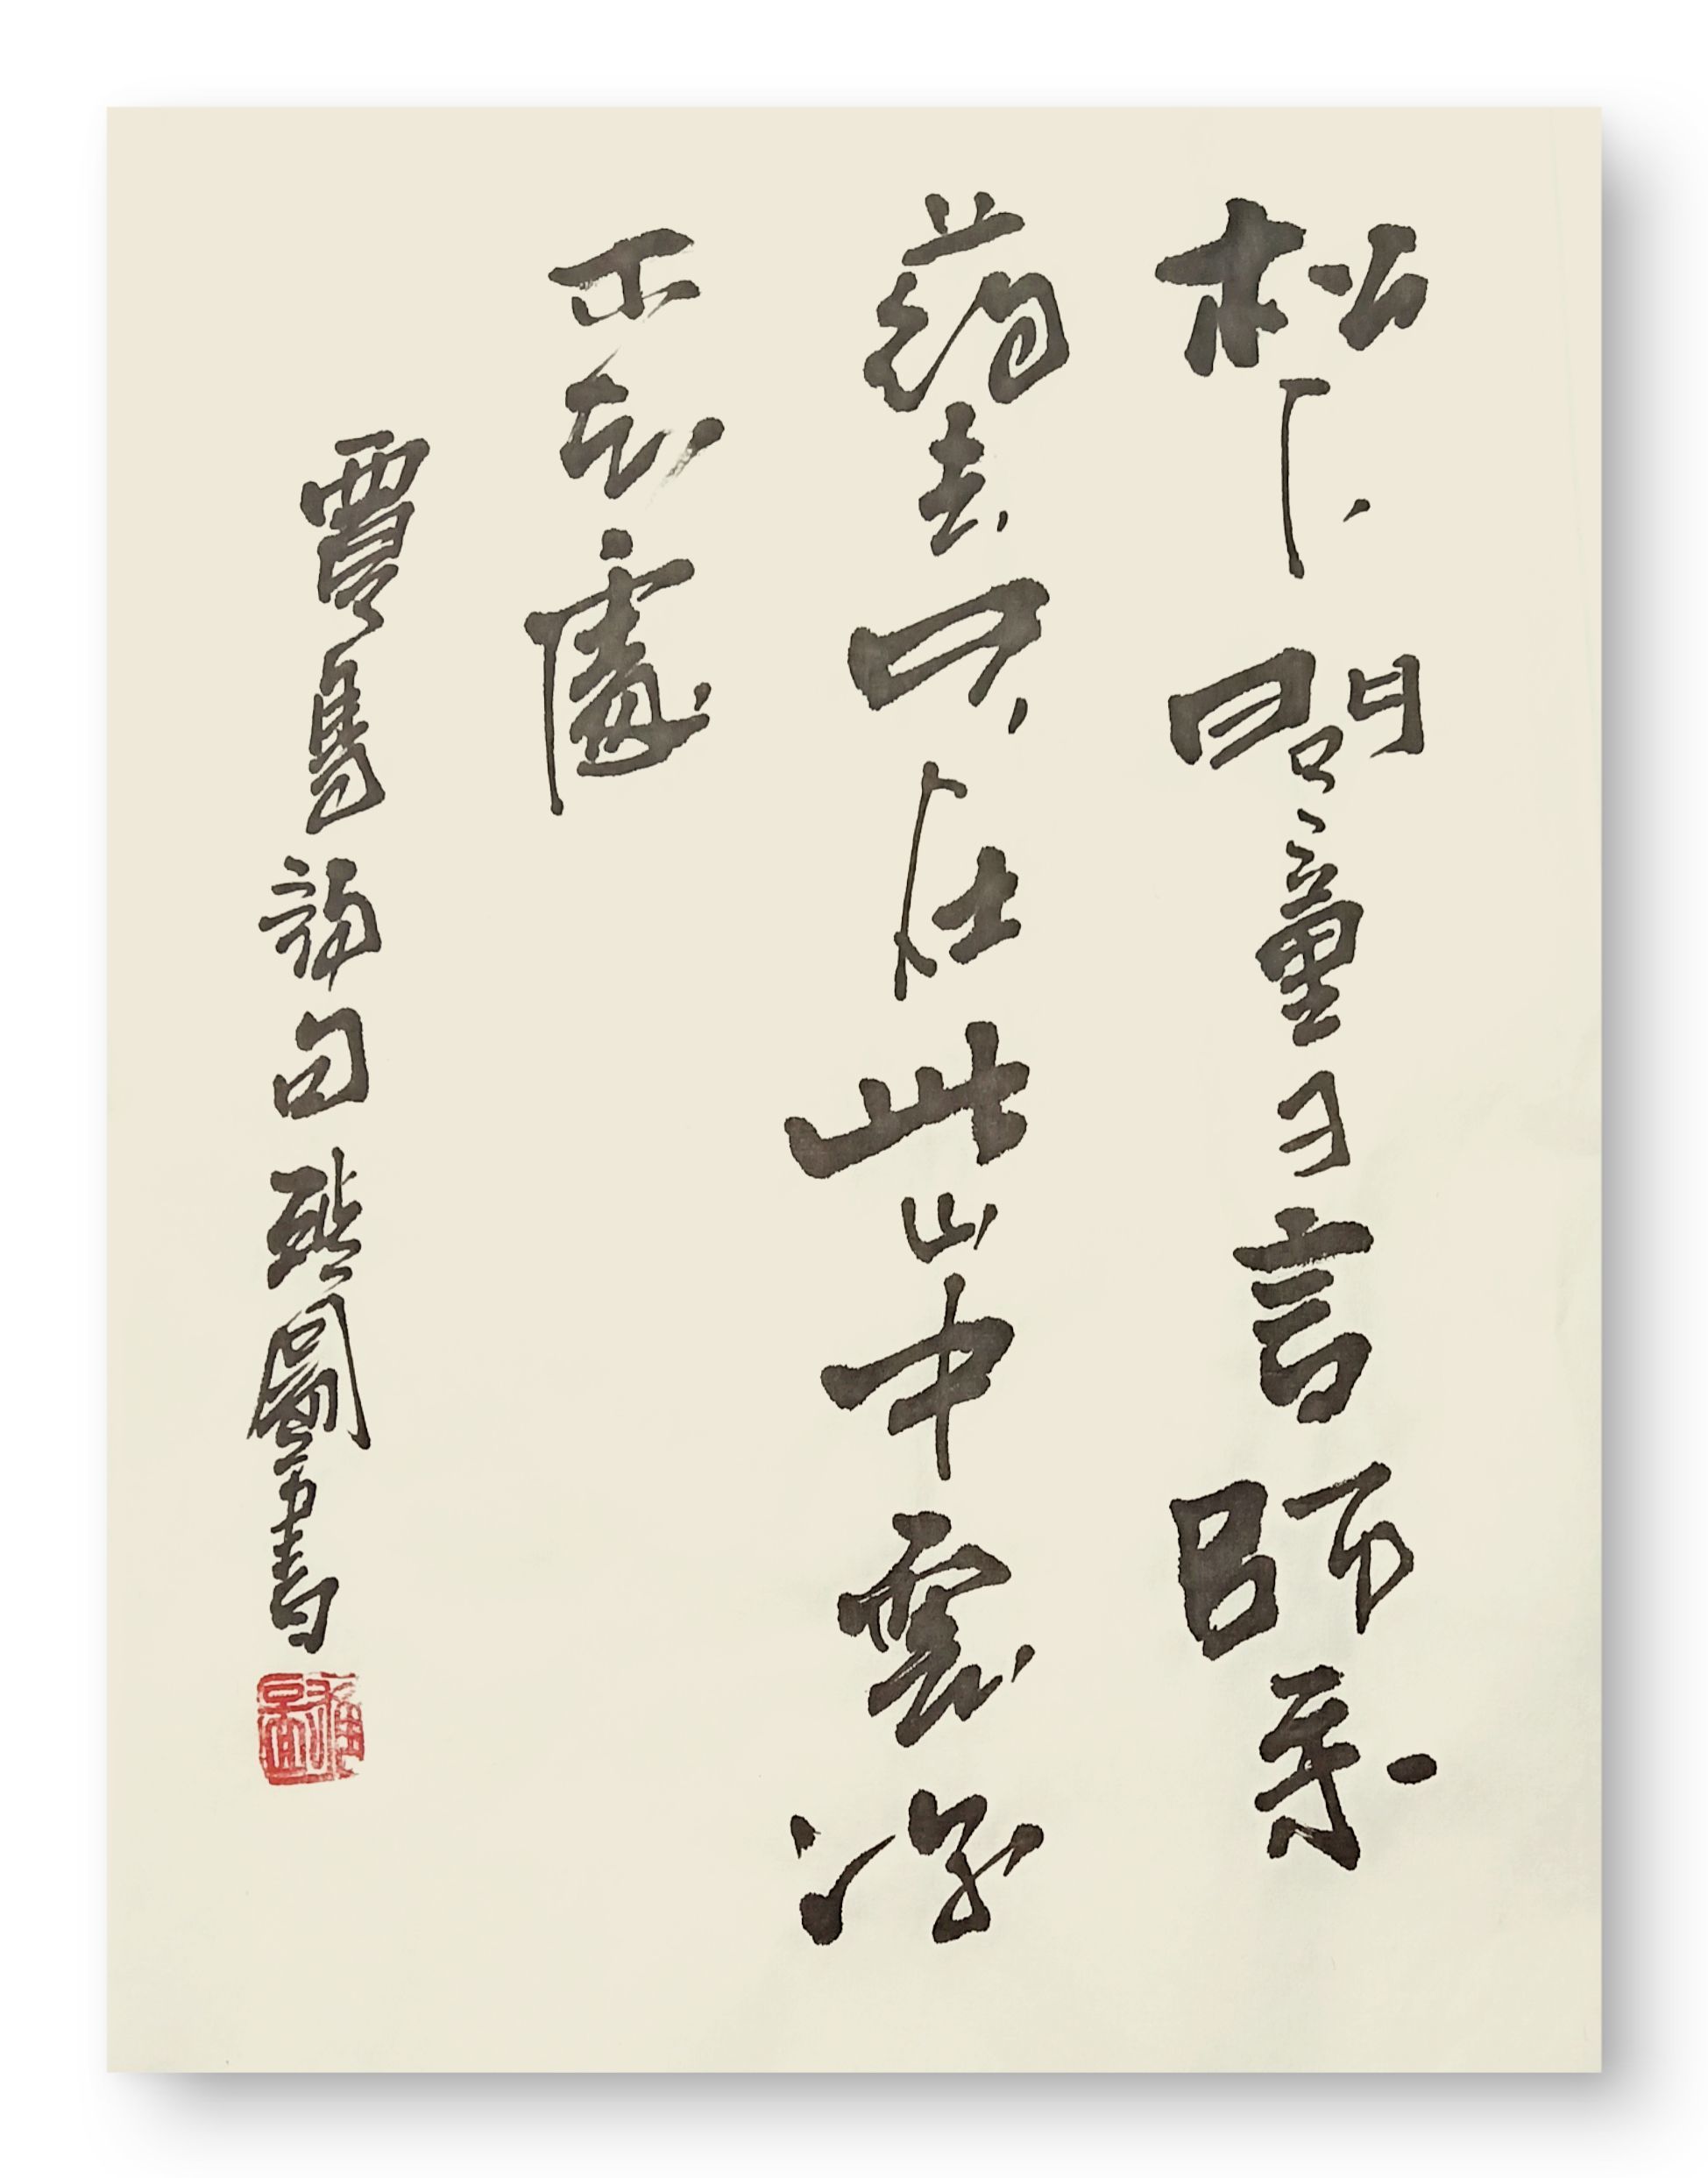 松下問童子言師采
藥去只在此山中雲深
不知處
賈島詩句 啟圖書